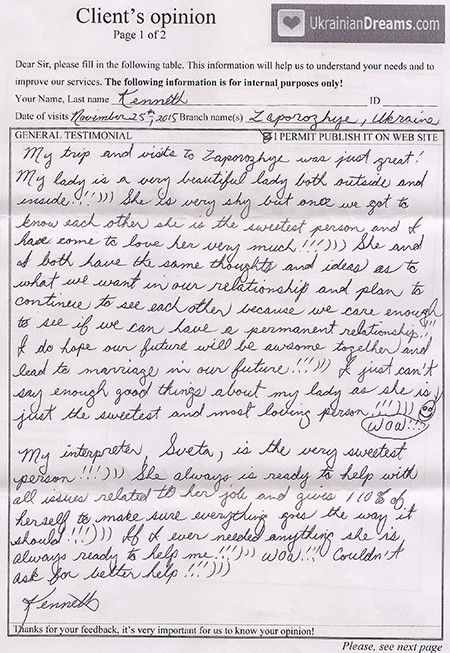 Client's opinion
Page 1 of 2
UkrainianDreams.com
Dear Sir, please fill in the following table. This information will help us to understand your needs and to
improve our services. The following information is for internal purposes only!
Your Name, Last name Kenneth ID
Date of visits November 25th, 2015 Branch name(s) Zaporozhye, Ukraine
GENERAL TESTIMONIAL I PERMIT PUBLISH IT ON WEB SITE
My trip and visits to Zaporozhye was just great!
My lady is a very beautiful lady both outside and
inside!!!))) She is very shy but once we got to
know each other she is the sweetest person and I
have come to love her very much!!!))) She and
I both have the same thoughts and ideas as to
what we want in our relationship and plan to
continue to see each other because we care enough
to see if we can have a permanent relationship!!!
I do hope our future will be awsome together and
lead to marriage in our future!!!))) I just can't
say enough good things about my lady as she is
just the sweetest and most loving person!!!)))
Woa!!!
My interpreter, Sveta, is the very sweetest
person!!!))) She always is ready to help with
all issues related to her job and gives 110% of
herself to make sure everything goes the way it
should!!!))) If I ever needed anything she is
always ready to help me!!!))) Woa!!! Couldn't
ask for better help!!!)))
Kenneth
Thanks for your feedback, it's very important for us to know your opinion!
Please, see next page